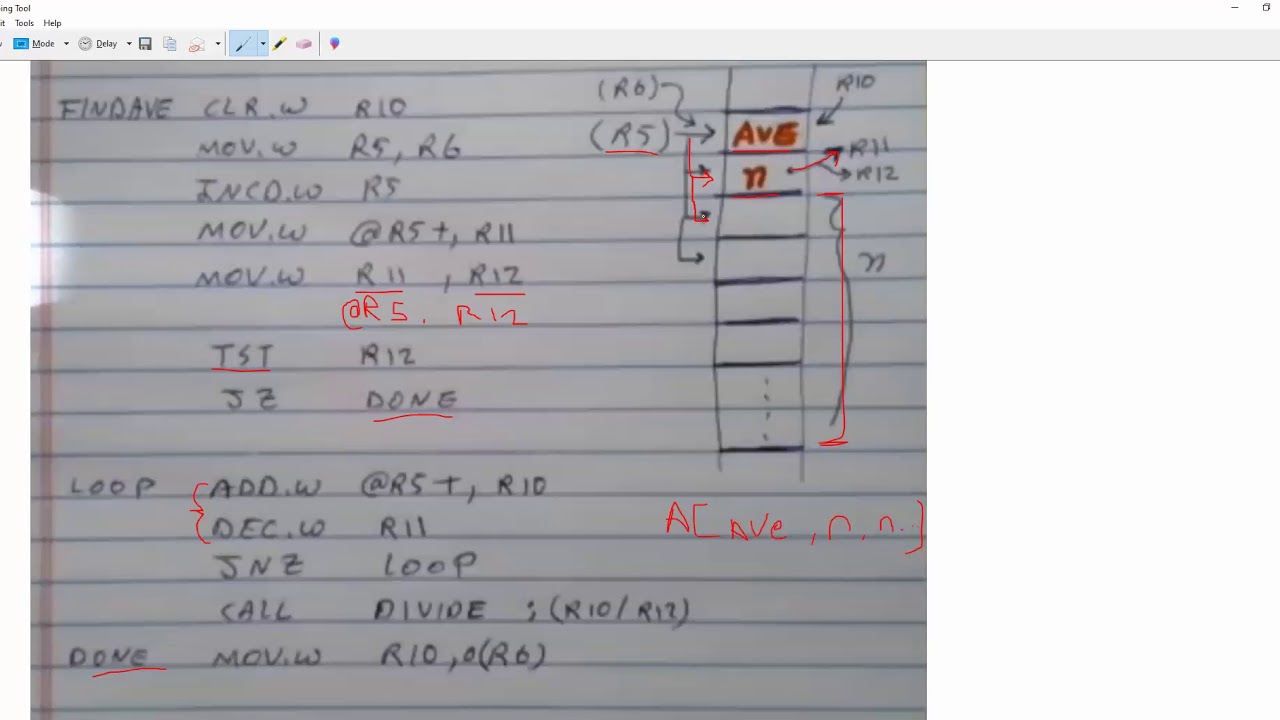 ing Tool
it Tools Help
Mode Delay
FINDAVE CLR.W R10
MOV.W R5, R6
INCD.W R5
MOV.W @R5+, R11
MOV.W R11 , R12
@R5. R12
TST R12
JZ DONE
LOOP ADD.W @R5+, R10
DEC.W R11
JNZ LOOP
CALL DIVIDE ; (R10/R12)
DONE MOV.W R10, 0(R6)
(R6) R10
(R5) AVE
n R11
R12
n
A[ AVe , n, n.. ]